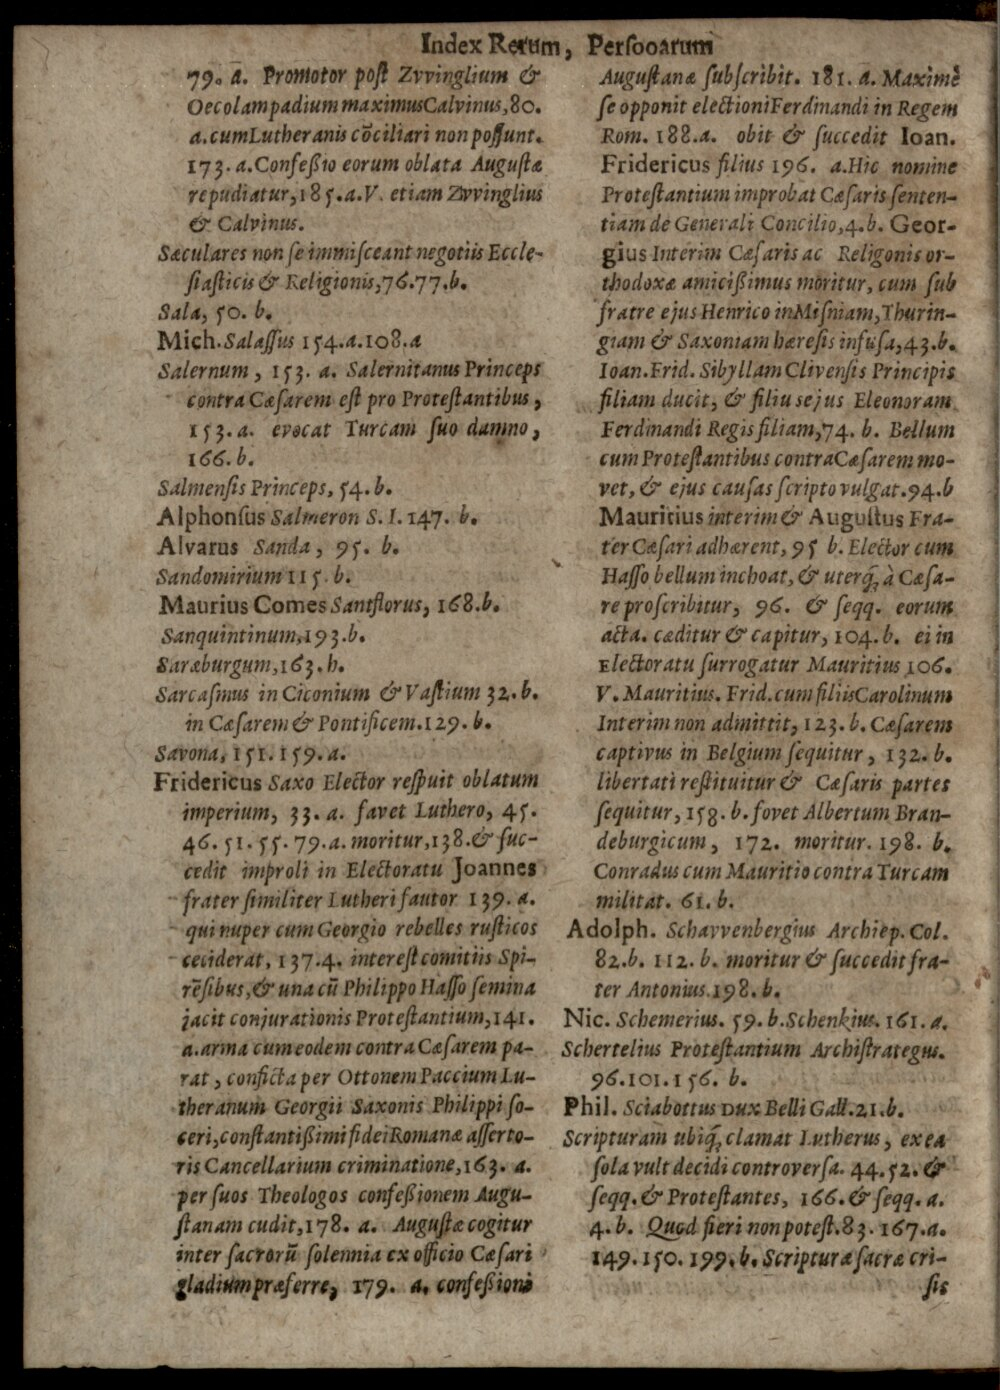 Index Rerum, Persooarum
79. a. Promotor poſt Zvvinglium &
Oecolampadium maximus Calvinus, 80.
a. cum Lutheranis cōciliari non poſſunt.
173. a. Confeßio eorum oblata Auguſtæ
repudiatur, 185. a. V. etiam Zvvinglius
& Calvinus.
Sæculares non ſe immiſceant negotiis Eccle-
ſiaſticis & Religionis, 76. 77. b.
Sala, 50. b.
Mich. Salaſſus 154. a. 108. a
Salernum, 153. a. Salernitanus Princeps
contra Cæſarem eſt pro Proteſtantibus,
153. a. evocat Turcam ſuo damno,
166. b.
Salmenſis Princeps, 54. b.
Alphonſus Salmeron S. I. 147. b.
Alvarus Sanda, 95. b.
Sandomirium 115. b.
Maurius Comes Santflorus, 168. b.
Sanquintinum, 193. b.
Saræburgum, 163. h.
Sarcaſmus in Ciconium & Vaſtium 32. b.
in Cæſarem & Pontificem. 129. b.
Savona, 151. 159. a.
Fridericus Saxo Elector reſpuit oblatum
imperium, 33. a. favet Luthero, 45.
46. 51. 55. 79. a. moritur, 138. & ſuc-
cedit improli in Electoratu Joannes
frater ſimiliter Lutheri fautor 139. a.
qui nuper cum Georgio rebelles ruſticos
ceciderat, 137. 4. intereſt comitiis Spi-
rēſibus, & una cū Philippo Haſſo ſemina
jacit conjurationis Proteſtantium, 141.
a. arma cum eodem contra Cæſarem pa-
rat, conficta per Ottonem Paccium Lu-
theranum Georgii Saxonis Philippi ſo-
ceri, conſtantißimi fidei Romanæ aſſerto-
ris Cancellarium criminatione, 163. a.
per ſuos Theologos confeßionem Augu-
ſtanam cudit, 178. a. Auguſtæ cogitur
inter ſacrorū ſolennia ex officio Cæſari
gladium præferre, 179. a. confeßioni
Auguſtanæ ſubſcribit. 181. a. Maximè
ſe opponit electioni Ferdinandi in Regem
Rom. 188. a. obit & ſuccedit Ioan.
Fridericus filius 196. a. Hic nomine
Proteſtantium improbat Cæſaris ſenten-
tiam de Generali Concilio, 4. b. Geor-
gius Interim Cæſaris ac Religonis or-
thodoxæ amicißimus moritur, cum ſub
fratre ejus Henrico in Miſniam, Thurin-
giam & Saxoniam hæreſis infuſa, 43. b.
Ioan. Frid. Sibyllam Clivenſis Principis
filiam ducit, & filiuſ ejus Eleonoram
Ferdinandi Regis filiam, 74. b. Bellum
cum Proteſtantibus contra Cæſarem mo-
vet, & ejus cauſas ſcripto vulgat. 94. b
Mauritius interim & Auguſtus Fra-
ter Cæſari adhærent, 95 b. Elector cum
Haſſo bellum inchoat, & uterq́; à Cæſa-
re proſcribitur, 96. & ſeqq. eorum
acta. cæditur & capitur, 104. b. ei in
Electoratu ſurrogatur Mauritius 106.
V. Mauritius. Frid. cum filiis Carolinum
Interim non admittit, 123. b. Cæſarem
captivus in Belgium ſequitur, 132. b.
libertati reſtituitur & Cæſaris partes
ſequitur, 158. b. fovet Albertum Bran-
deburgicum, 172. moritur. 198. b.
Conradus cum Mauritio contra Turcam
militat. 61. b.
Adolph. Schavvenbergius Archiep. Col.
82. b. 112. b. moritur & ſuccedit fra-
ter Antonius. 198. b.
Nic. Schemerius. 59. b. Schenkius. 161. a.
Schertelius Proteſtantium Archiſtrategus.
96. 101. 156. b.
Phil. Sciabottus Dux Belli Gall. 21. b.
Scripturam ubiq́; clamat Lutherus, ex ea
ſola vult decidi controverſa. 44. 52. &
ſeqq. & Proteſtantes, 166. & ſeqq. a.
4. b. Quod fieri non poteſt. 83. 167. a.
149. 150. 199. b. Scripturæ ſacræ cri-
ſis